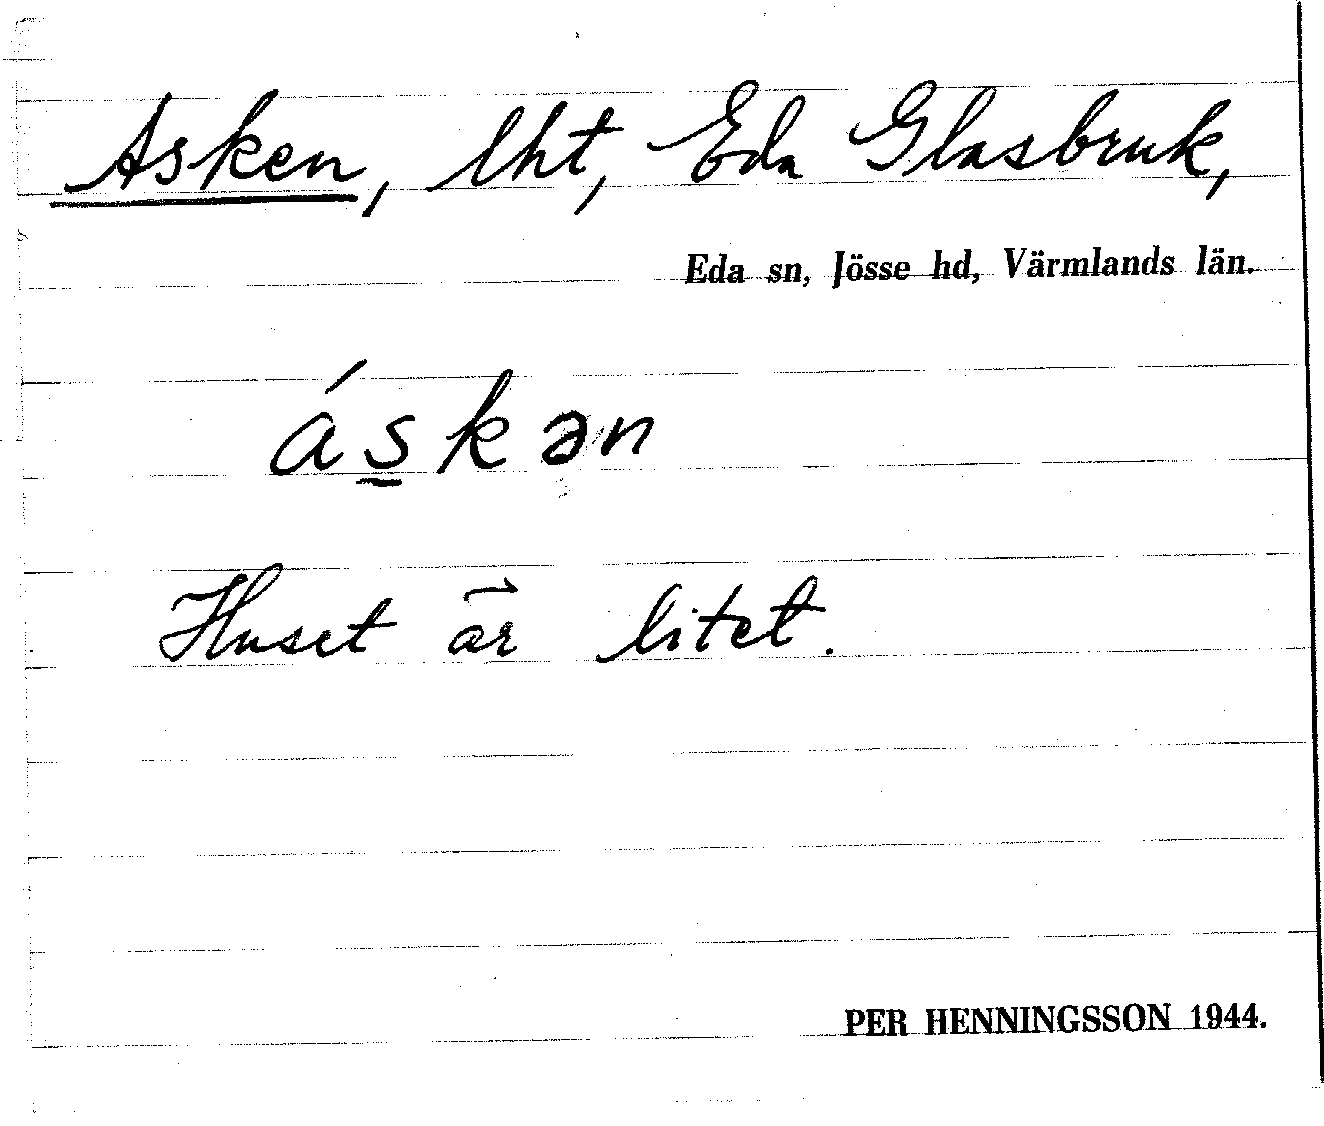 Asken, lht, Eda Glasbruk,
Eda sn, Jösse hd, Värmlands län.
ás̲kən
Huset är litet.
PER HENNINGSSON 1944.